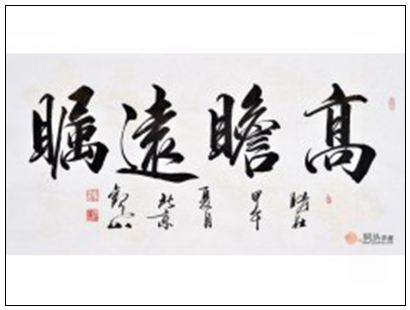 髙瞻遠瞩
時在
甲午
夏月
北京